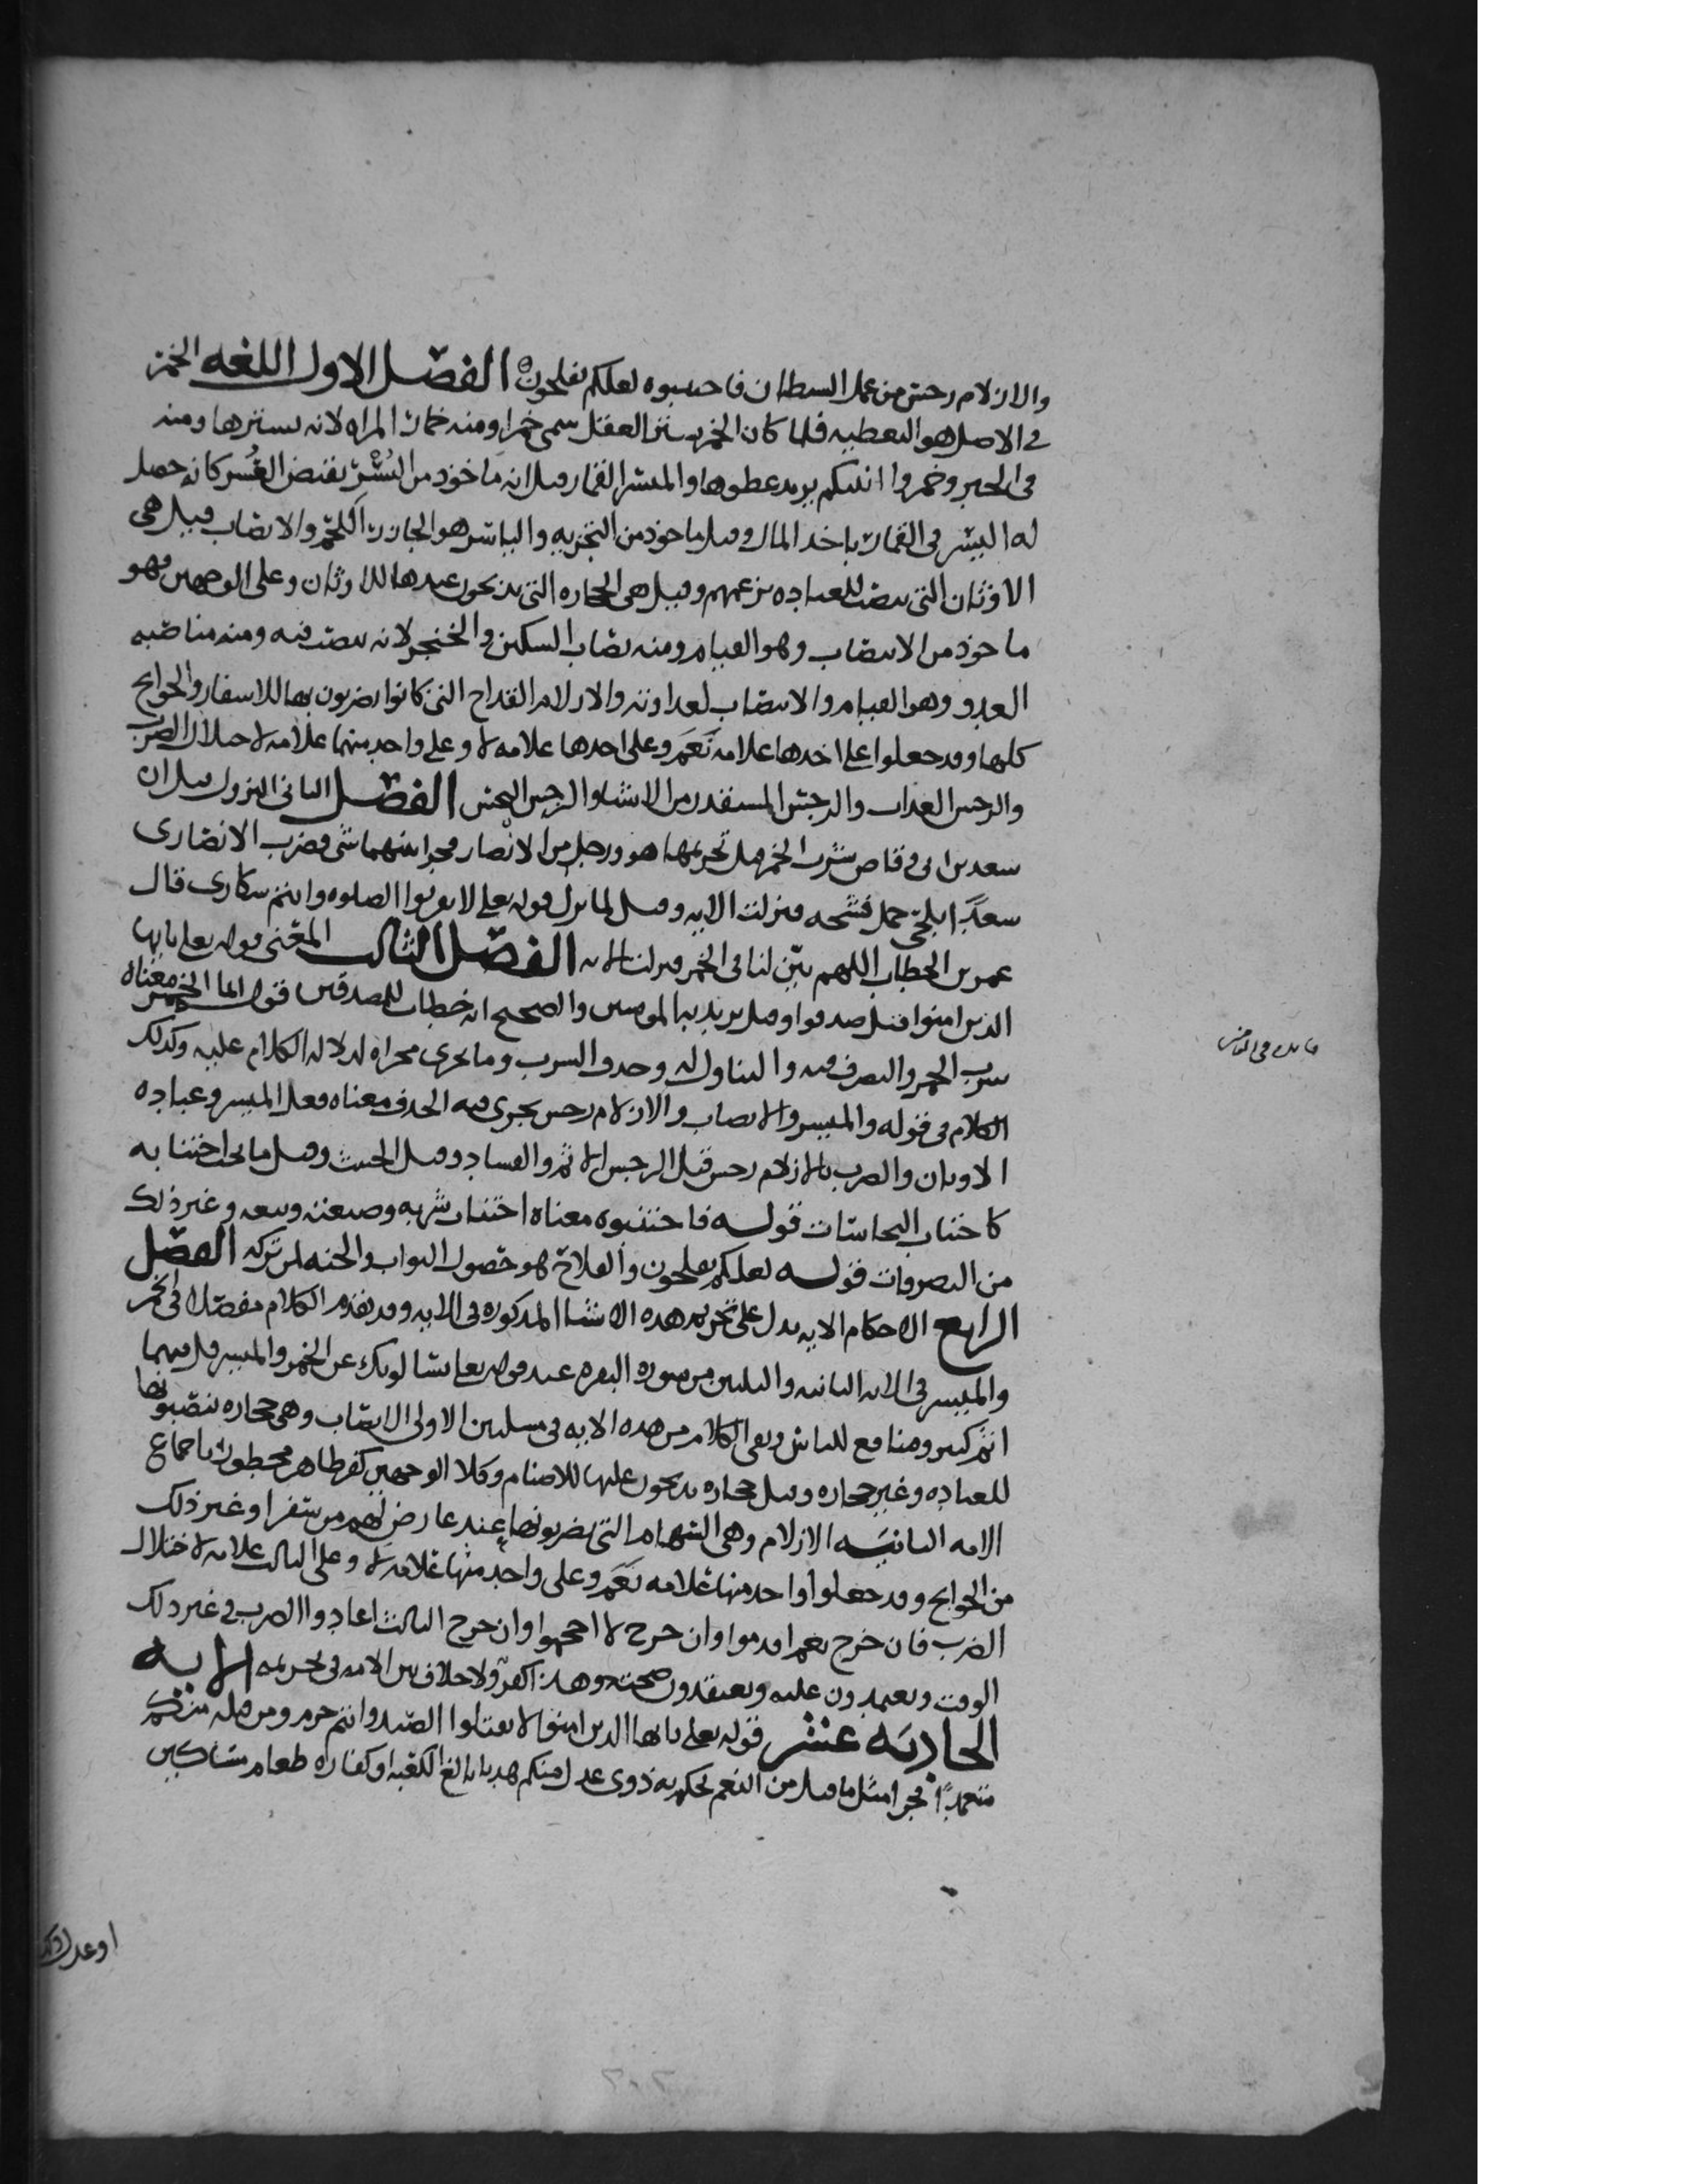 والازلام رجس من عمل الشيطان فاجتنبوه لعلكم تفلحون الفصل الاول اللغه الخمر
في الاصل هو التغطيه فلما كان الخمر يستر العقل سمي خمرا ومنه خمار المراه لانه يسترها ومنه
في الخبر وخمروا انيتكم يريد غطوها والميسر القمار وقيل انه ماخوذ من اليُسْر نقيض العُسر كانه حصل
له اليسر في القمار باخذ المال وقيل ماخوذ من التجزيه والياسر هو الجازر اللحم والانصاب قيل هي
الاوثان التي نصبت للعباده بزعمهم وقيل هي الحجاره التي يذبحون عندها للاوثان وعلى الوجهين فهو
ماخوذ من الانتصاب وهو القيام ومنه نصاب السكين والخنجر لانه ينصب فيه ومنه مناصبه
العدو وهو القيام والانتصاب لعداوته والازلام القداح التي كانوا يضربون بها للاسفار والحوايج
كلها وقد جعلوا على احدها علامه نَعَم وعلى احدها علامه لا وعلى واحد منهما علامه لاختلال الضرب
والرجس العذاب والرجس المستقذر من الاشيا والرجس النجس الفصل الثاني النزول قيل ان
سعد بن ابي وقاص شرب الخمر قبل تحريمها هو ورجل من الانصار فجرا بينهما شي فضرب الانصاري
سعدًا بلحي جمل فشجه فنزلت الايه وقيل لما نزل قوله تعلى لا تقربوا الصلوه وانتم سكارى قال
عمر بن الخطاب اللهم بيّن لنا في الخمر فنزلت الايه الفصل الثالث المعنى قوله تعلى يايها
الذين امنوا قيل صدقوا وقيل يريد به المومنين والصحيح انه خطاب للمصدقين قوله انما الخمر معناه
شرب الخمر والتصرف فيه والتناول له وحذف الشرب وما يجري مجراه لدلاله الكلام عليه وكذلك
الكلام في قوله والميسر والانصاب والازلام رجس يجري فيه الحذف معناه فعل الميسر وعباده
الاوثان والضرب بالازلام رجس قيل الرجس الاثم والفساد وقيل الخبث وقيل ما يجب اجتنابه
كاجتناب النجاسات قوله فاجتنبوه معناه اجتناب شربه وصنعته وبيعه وغير ذلك
من التصرفات قوله لعلكم تفلحون والفلاح هو حصول الثواب والجنه لمن تركه الفصل
الرابع الاحكام الايه تدل على تحريم هذه الاشيا المذكوره في الايه وقد تقدم الكلام مفصلا في الخمر
والميسر في الايه الثانيه والثلثين من سوره البقره عند قوله تعلى يسالونك عن الخمر والميسر قل فيهما
اثم كبير ومنافع للناس وبقي الكلام من هذه الايه في مسلتين الاولى الانصاب وهي حجاره ينصبونها
للعباده وغير حجاره وقيل حجاره يذبحون عليها للاصنام وكلا الوجهين كفر ظاهر محظور باجماع
الامه الثانيه الازلام وهي السهام التي يضربونها عند عارض لهم من سفر او غير ذلك
من الحوايج وقد جعلوا واحد منها علامه نَعَم وعلى واحد منها علامه لا وعلى الثالث علامه لاختلال
الضرب فان خرج نعم اقدموا وان خرج لا احجموا وان خرج الثالث اعادوا الضرب في غير ذلك
الوقت ويعتمدون عليه ويعتقدون صحته وهذا كفر ولا خلاف بين الامه في تحريمه الايه
الحاديه عشر قوله تعلى يايها الذين امنوا لا تقتلوا الصيد وانتم حرم ومن قتله منكم
متعمدًا فجزا مثل ما قتل من النعم يحكم به ذوى عدل منكم هديا بالغ الكعبه او كفاره طعام مساكين
او عدل ذلك